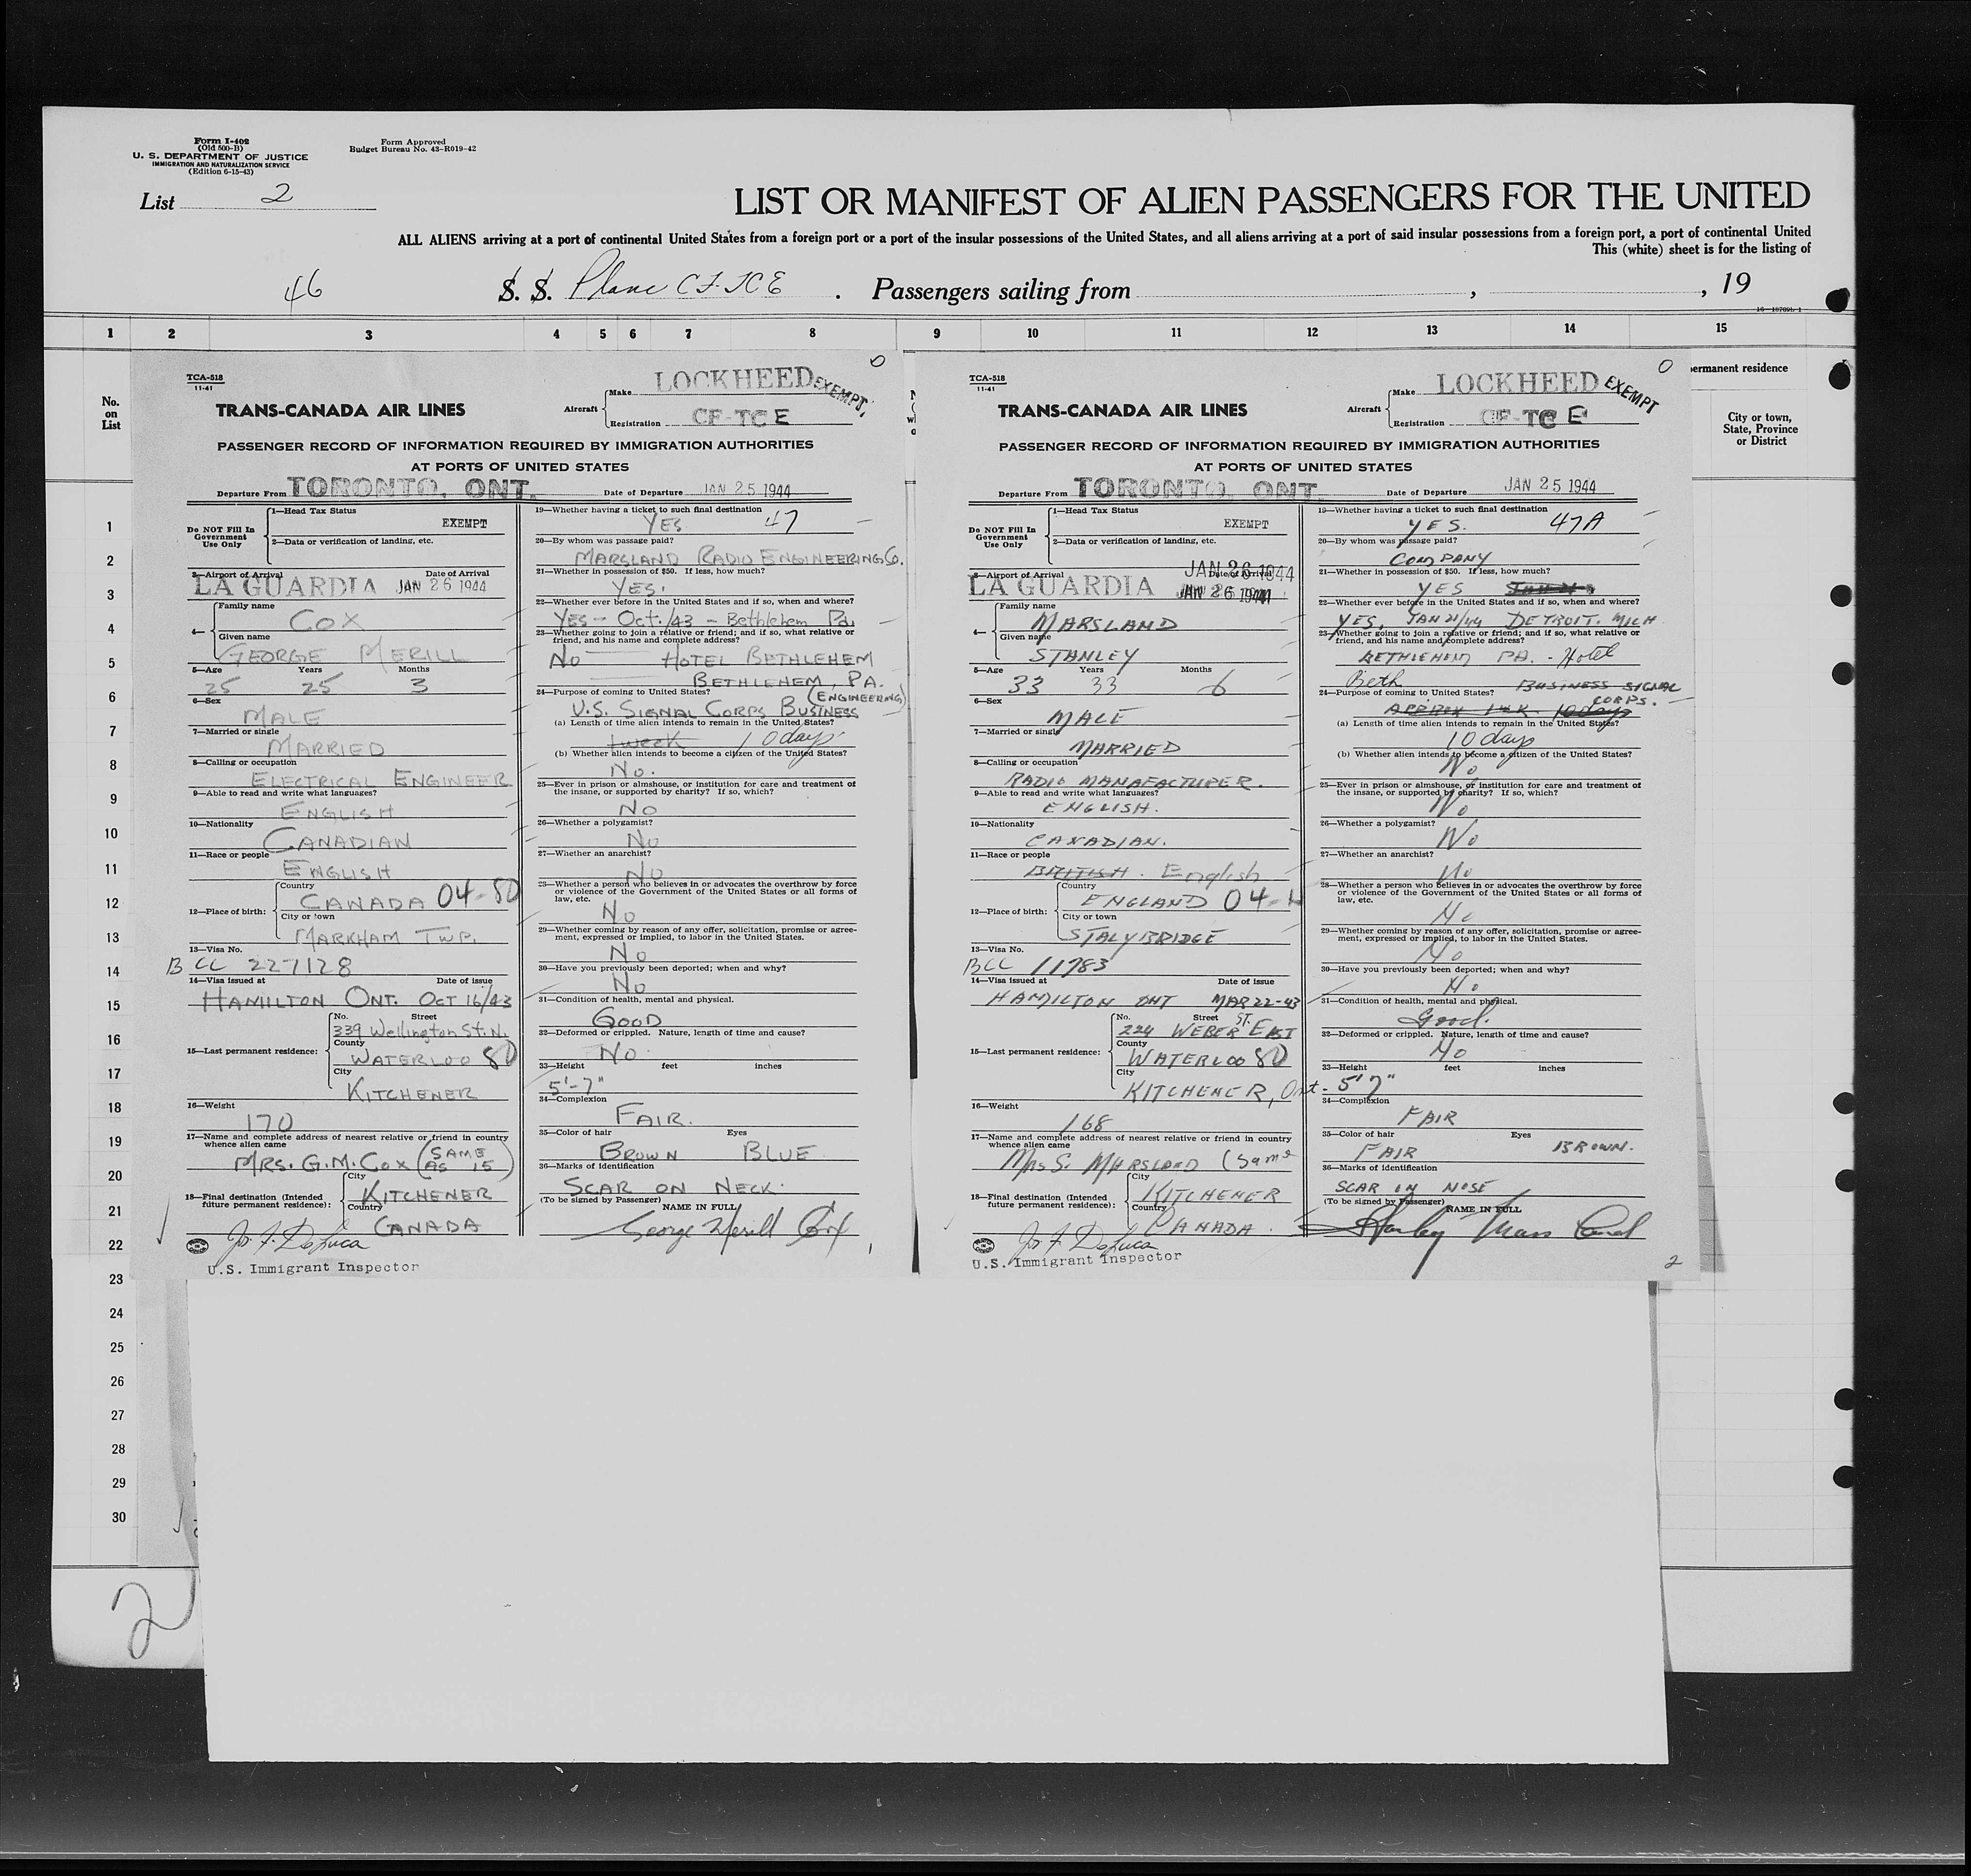 Form I-402
(Old 500-B)
U. S. DEPARTMENT OF JUSTICE
IMMIGRATION AND NATURALIZATION SERVICE
(Edition 6-15-43)
Form Approved
Budget Bureau No. 43-R019-42
List 2
LIST OR MANIFEST OF ALIEN PASSENGERS FOR THE UNITED
ALL ALIENS arriving at a port of continental United States from a foreign port or a port of the insular possessions of the United States, and all aliens arriving at a port of said insular possessions from a foreign port, a port of continental United
This (white) sheet is for the listing of
46 S. S. Plane CF-TCE . Passengers sailing from , , 19
1 2 3 4 5 6 7 8 9 10 11 12 13 14 15
No.
on
List
ermanent residence
City or town,
State, Province
or District
1
2
3
4
5
6
7
8
9
10
11
12
13
14
15
16
17
18
19
20
21
22
23
24
25
26
27
28
29
30
2
0
TCA-518
11-41
TRANS-CANADA AIR LINES
Aircraft
Make LOCKHEED EXEMPT
Registration CF-TC E
PASSENGER RECORD OF INFORMATION REQUIRED BY IMMIGRATION AUTHORITIES
AT PORTS OF UNITED STATES
Departure From TORONTO, ONT. Date of Departure JAN 25 1944
Do NOT Fill In
Government
Use Only
1—Head Tax Status
EXEMPT
2—Data or verification of landing, etc.
3—Airport of Arrival Date of Arrival
LA GUARDIA JAN 26 1944
4—
Family name
COX
Given name
GEORGE MERILL
5—Age Years Months
25 25 3
6—Sex
MALE
7—Married or single
MARRIED
8—Calling or occupation
ELECTRICAL ENGINEER
9—Able to read and write what languages?
ENGLISH
10—Nationality
CANADIAN
11—Race or people
ENGLISH
12—Place of birth:
Country
CANADA 04-80
City or town
MARKHAM TWP.
13—Visa No.
B CC 227128
14—Visa issued at Date of issue
HAMILTON ONT. OCT 16/43
15—Last permanent residence:
No. Street
339 Wellington St. N.
County
WATERLOO 80
City
KITCHENER
16—Weight
170
17—Name and complete address of nearest relative or friend in country
whence alien came
MRS. G.M. COX (SAME AS 15)
18—Final destination (Intended
future permanent residence):
City
KITCHENER
Country
CANADA
Jo. F. DeLuca
U.S. Immigrant Inspector
19—Whether having a ticket to such final destination
YES 47
20—By whom was passage paid?
MARSLAND RADIO ENGINEERING Co.
21—Whether in possession of $50. If less, how much?
YES.
22—Whether ever before in the United States and if so, when and where?
YES - Oct./43 - Bethlehem Pa.
23—Whether going to join a relative or friend; and if so, what relative or
friend, and his name and complete address?
No HOTEL BETHLEHEM
BETHLEHEM, PA.
24—Purpose of coming to United States? (ENGINEERING)
U.S. SIGNAL CORPS BUSINESS
(a) Length of time alien intends to remain in the United States?
1 week 10 days
(b) Whether alien intends to become a citizen of the United States?
No.
25—Ever in prison or almshouse, or institution for care and treatment of
the insane, or supported by charity? If so, which?
No
26—Whether a polygamist?
No
27—Whether an anarchist?
No
28—Whether a person who believes in or advocates the overthrow by force
or violence of the Government of the United States or all forms of
law, etc.
No
29—Whether coming by reason of any offer, solicitation, promise or agree-
ment, expressed or implied, to labor in the United States.
No
30—Have you previously been deported; when and why?
No
31—Condition of health, mental and physical.
GOOD
32—Deformed or crippled. Nature, length of time and cause?
No
33—Height feet inches
5'-7"
34—Complexion
FAIR.
35—Color of hair Eyes
BROWN BLUE
36—Marks of identification
SCAR ON NECK.
(To be signed by Passenger) NAME IN FULL
George Merill Cox
1
0
TCA-518
11-41
TRANS-CANADA AIR LINES
Aircraft
Make LOCKHEED EXEMPT
Registration CF-TC E
PASSENGER RECORD OF INFORMATION REQUIRED BY IMMIGRATION AUTHORITIES
AT PORTS OF UNITED STATES
Departure From TORONTO, ONT. Date of Departure JAN 25 1944
Do NOT Fill In
Government
Use Only
1—Head Tax Status
EXEMPT
2—Data or verification of landing, etc.
JAN 26 1944
3—Airport of Arrival Date of Arrival
LA GUARDIA JAN 26 1944
4—
Family name
MARSLAND
Given name
STANLEY
5—Age Years Months
33 33 6
6—Sex
MALE
7—Married or single
MARRIED
8—Calling or occupation
RADIO MANAFACTURER.
9—Able to read and write what languages?
ENGLISH.
10—Nationality
CANADIAN.
11—Race or people
BRITISH. English
12—Place of birth:
Country
ENGLAND 04-
City or town
STALYBRIDGE
13—Visa No.
BCC 11783
14—Visa issued at Date of issue
HAMILTON ONT MAR 22-43
15—Last permanent residence:
No. Street
224 WEBER ST. EAST
County
WATERLOO 80
City
KITCHENER, Ont.
16—Weight
168
17—Name and complete address of nearest relative or friend in country
whence alien came
Mrs S. MARSLAND (Same
18—Final destination (Intended
future permanent residence):
City
KITCHENER
Country
CANADA.
Jo. F. DeLuca
U.S. Immigrant Inspector
19—Whether having a ticket to such final destination
YES. 47A
20—By whom was passage paid?
COMPANY
21—Whether in possession of $50. If less, how much?
YES
22—Whether ever before in the United States and if so, when and where?
YES, JAN 21/44 DETROIT. MICH
23—Whether going to join a relative or friend; and if so, what relative or
friend, and his name and complete address?
BETHLEHEM PA. - Hotel
Beth BUSINESS SIGNAL
24—Purpose of coming to United States? CORPS.
APPROX 1 WK. 10 days
(a) Length of time alien intends to remain in the United States?
10 days
(b) Whether alien intends to become a citizen of the United States?
No
25—Ever in prison or almshouse, or institution for care and treatment of
the insane, or supported by charity? If so, which?
No
26—Whether a polygamist?
No
27—Whether an anarchist?
No
28—Whether a person who believes in or advocates the overthrow by force
or violence of the Government of the United States or all forms of
law, etc.
No
29—Whether coming by reason of any offer, solicitation, promise or agree-
ment, expressed or implied, to labor in the United States.
No
30—Have you previously been deported; when and why?
No
31—Condition of health, mental and physical.
Good.
32—Deformed or crippled. Nature, length of time and cause?
No
33—Height feet inches
5'7"
34—Complexion
FAIR
35—Color of hair Eyes
FAIR BROWN.
36—Marks of identification
SCAR ON NOSE
(To be signed by Passenger) NAME IN FULL
Stanley Marsland
2